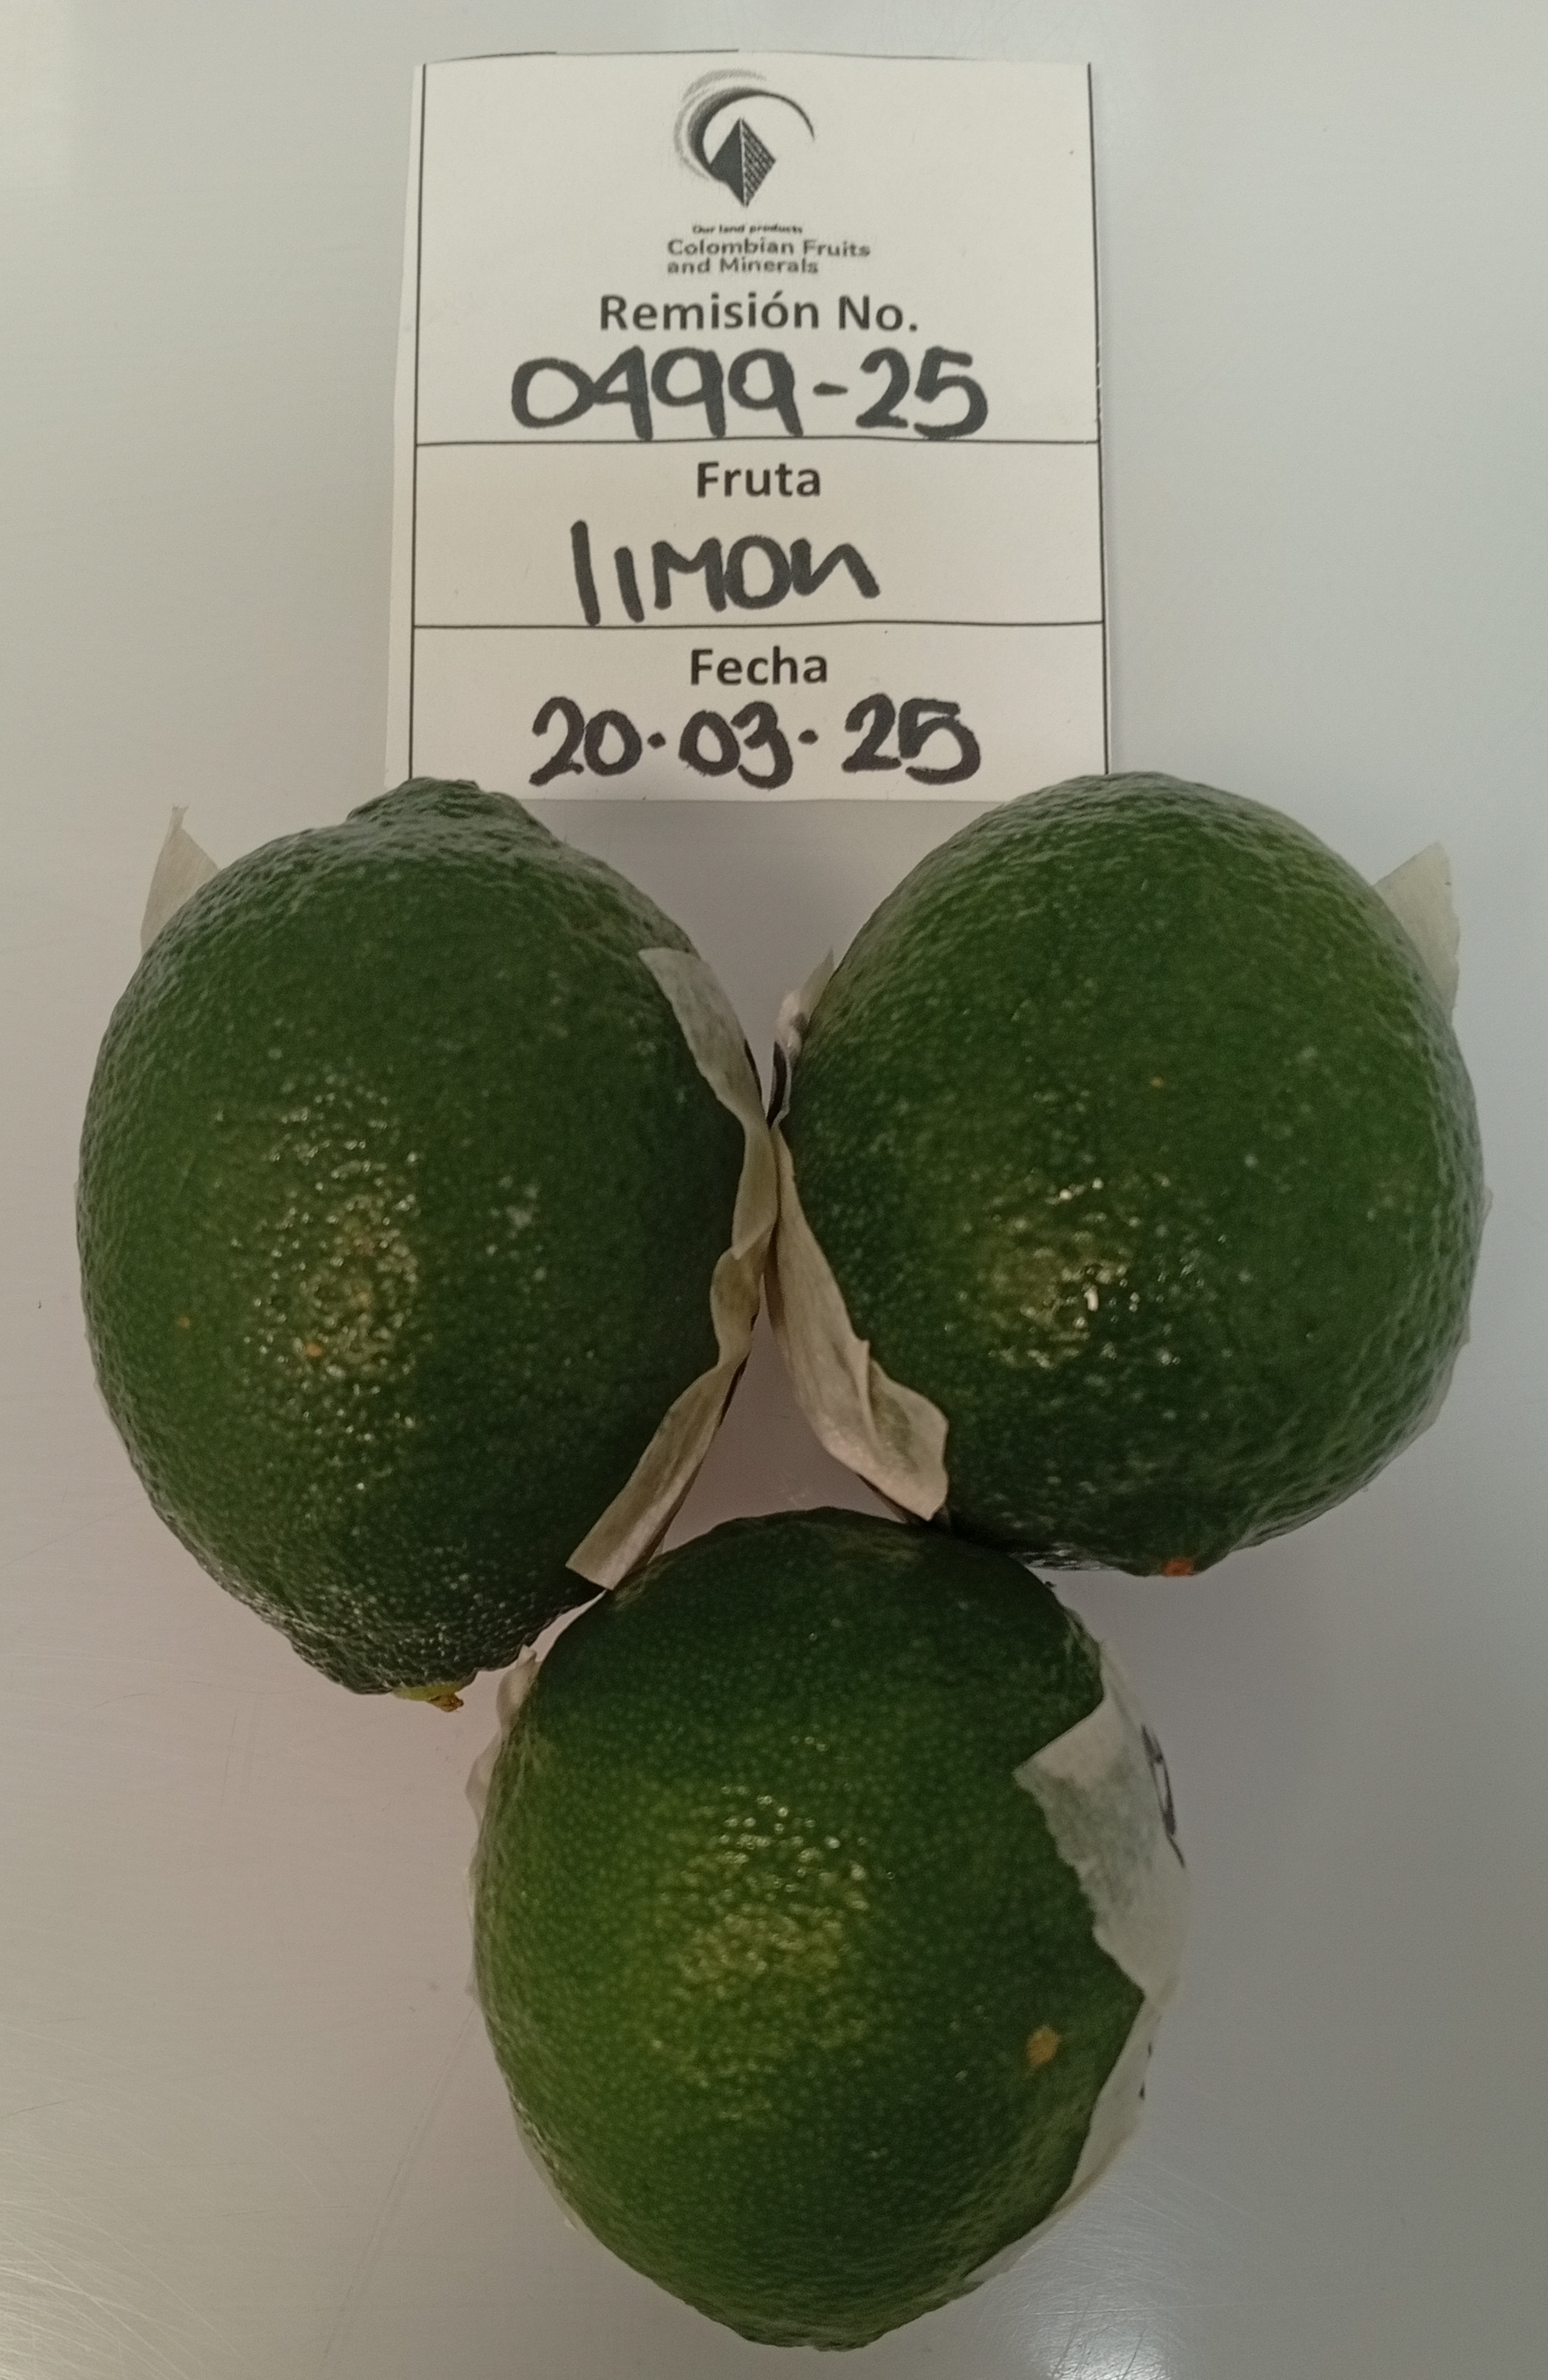 Our land products
Colombian Fruits
and Minerals
Remisión No.
0499-25
Fruta
limon
Fecha
20·03·25